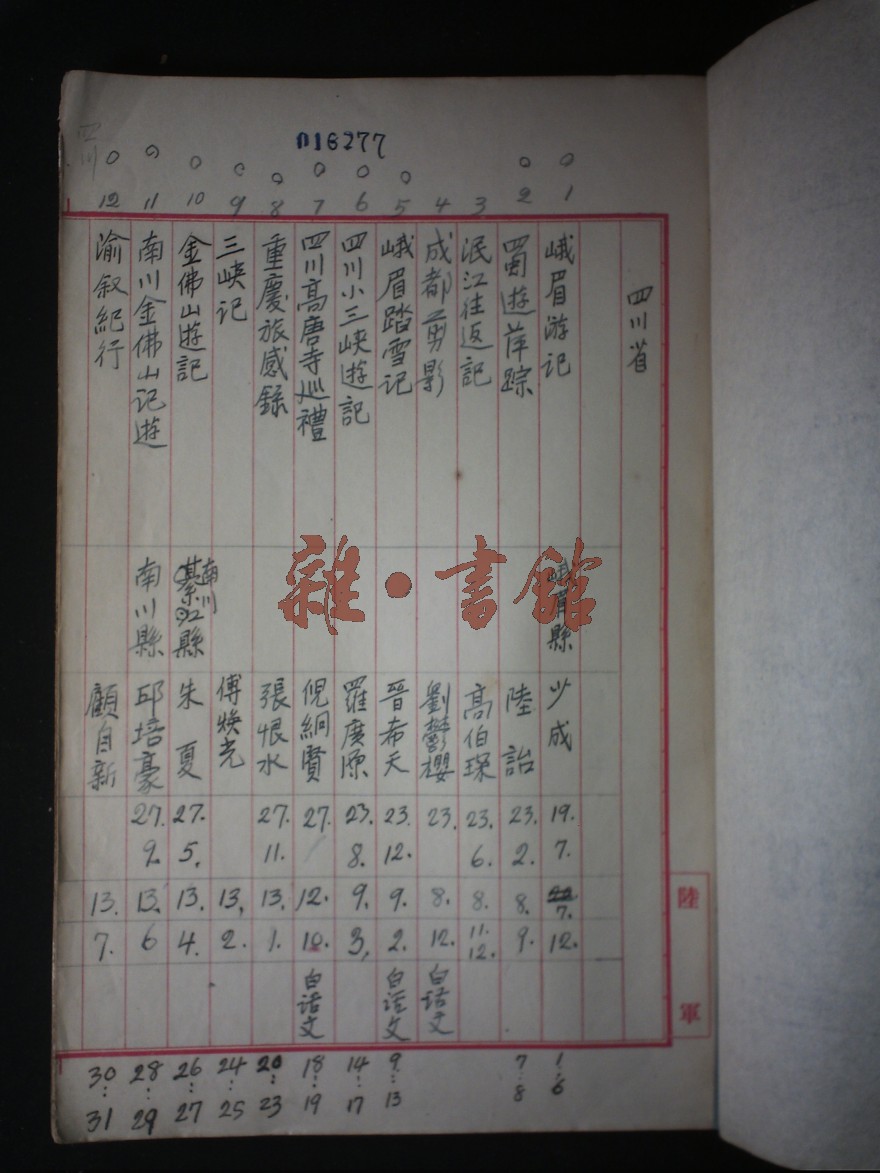 016277
四川省
1 峨眉游记 峨眉縣 少成 19. 7. 7. 12. 1:6
2 蜀遊萍踪 陸詒 23. 2. 8. 9. 7:8
3 泯江往返記 高伯琛 23. 6. 8. 11. 12.
4 成都剪影 劉鬱櫻 23. 8. 12. 白话文
5 峨眉踏雪记 晉希天 23. 12. 9. 2. 白话文 9:13
6 四川小三峡遊記 羅廣源 23. 8. 9. 3. 14:17
7 四川高唐寺巡禮 倪絅賢 27. 12. 10. 白话文 18:19
8 重慶旅感錄 張恨水 27. 11. 13. 1. 20:23
9 三峡记 傅焕光 13. 2. 24:25
10 金佛山遊記 南川 綦江縣 朱夏 27. 5. 13. 4. 26:27
11 南川金佛山记遊 南川縣 邱培豪 27. 9. 13. 6 28:29
12 渝叙紀行 顧自新 13. 7. 30:31
四川
陸軍
雜·書館